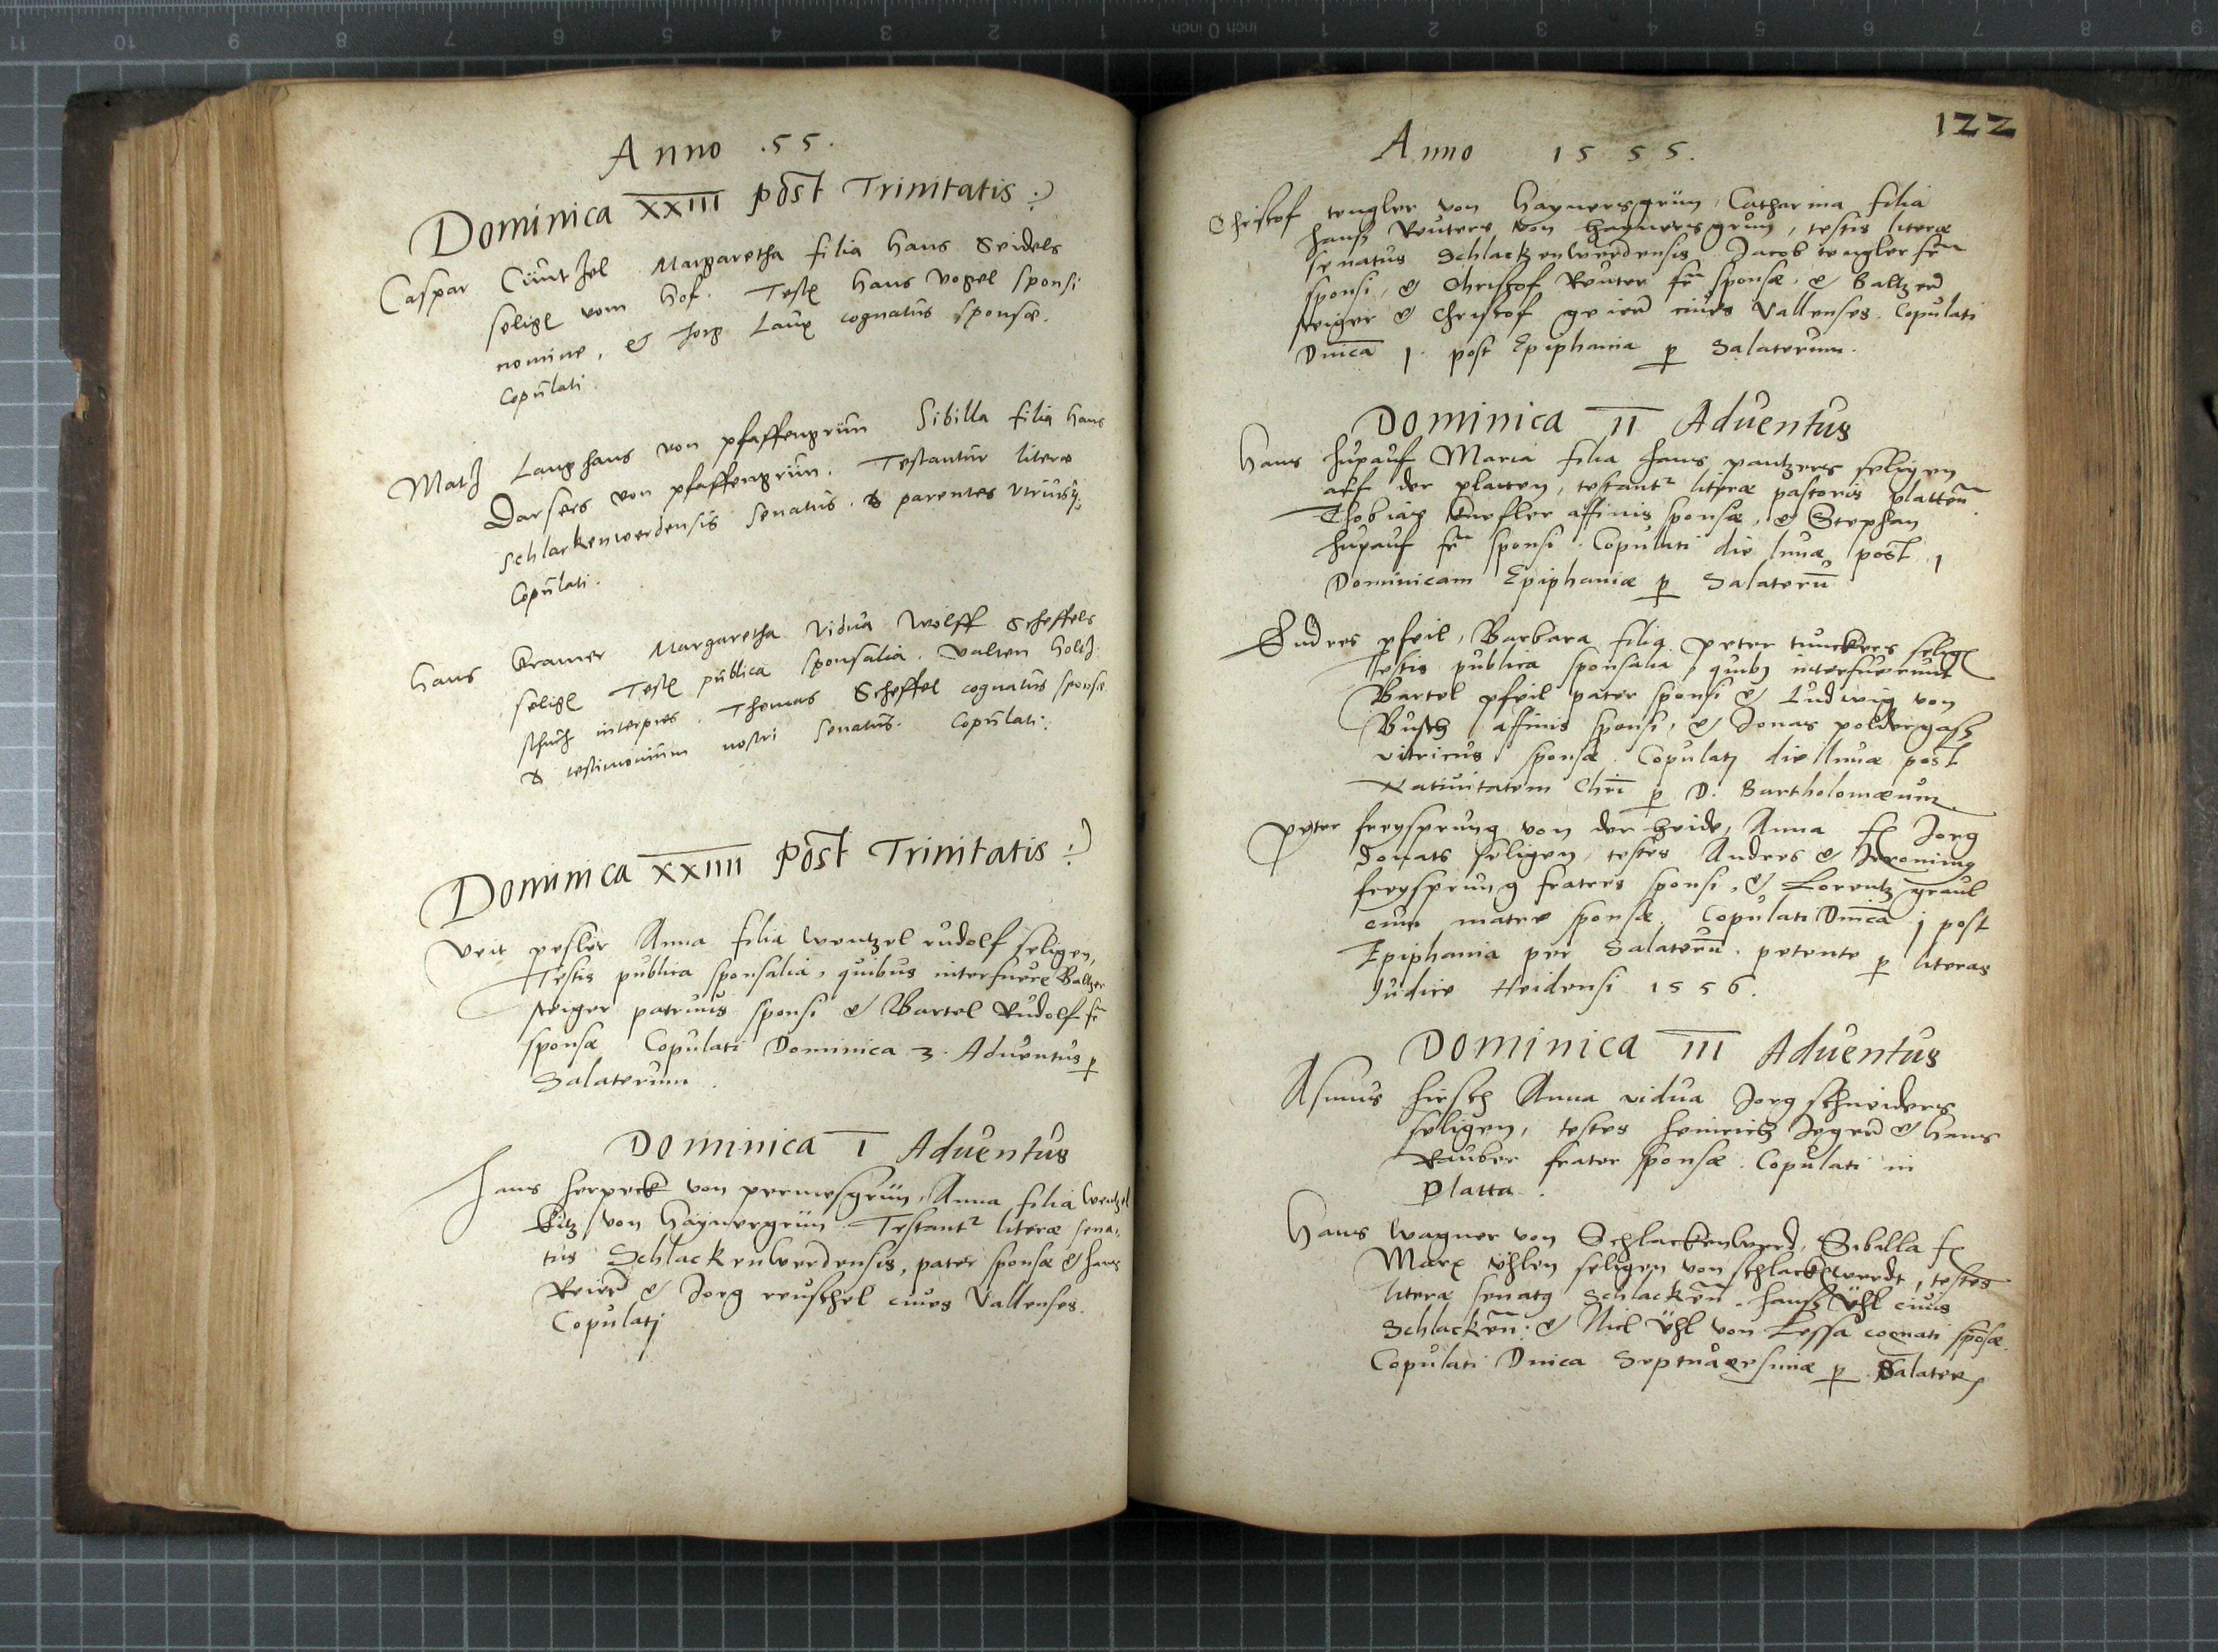 Anno .55.
Dominica XXIII post Trinitatis
Caspar Cüntzel Margaretha filia Hans Seidels
selige vom Hof. Teste Hans Vogel sponsi
nomine, & Jorg Laux cognatus sponsæ.
Copulati.
Matz Langhans von pfaffengrün Sibilla filia Hans
Darsers von pfaffengrün. Testantur literæ
Schlackenwerdensis Senatus & parentes utriusq;
Copulati.
Hans Cramer Margaretha vidua Wolff Scheffels
selige Teste publica sponsalia. Valten Holtz-
schuch interpres. Thomas Scheffel cognatus sponsæ
& testimonium nostri Senatus. Copulati.
Dominica XXIIII Post Trinitatis
Veit pesler Anna filia Wentzel rudolf seligen,
Testis publica sponsalia, quibus interfuere Baltzer
steiger patruus sponsi & Bartel Rudolf fr
sponsæ Copulati Dominica 3. Aduentus p
Salaterum
Dominica I Aduentus
Hans herpeck von permesgrün, Anna filia Wentzel
Kitz von Haynergrün Testant² literæ sena-
tus Schlackenwerdensis, pater sponsæ & Hans
Reier & Jorg reuschel ciues Vallenses.
Copulatj
122
Anno 1555.
Christof tengler von Haynersgrün, Catharina filia
Hans Reuters von haynersgrun, testis literæ
senatus Schlackenwerdensis Jacob tengler fr
sponsi, & Christof Reuter fr sponsæ, & Baltzer
steiger & Christof geier ciues Vallenses. Copulati
Dnica 1. post Epiphania p Salaterum.
Dominica II Aduentus
Hans hupauf Maria filia Hans pantzers seligen
aff der platten, testant² literæ pastoris platten
Thobias affinis sponsæ, & Stephan
hupauf fr sponsi. Copulati die lunæ post 1
Dominicam Epiphaniæ p Salaterū
Endres pfeil, Barbara filia peter tunckers selige
Testis publica sponsalia, quibz interfuerunt
Bartel pfeil pater sponsi & Ludwig von
Busch affinis sponsi, & Jonas poldergass
vitricus sponsæ. Copulatj die lunæ post
Natiuitatem Chri p D. Bartholomæum.
Peter freysprung von der heide, Anna f Jorg
Donats seligen, testes Andres & Jeronimg
freysprung fratres sponsi, & Lorentz graul
cum matre sponsæ. Copulati Dnica j post
Epiphania per Salaterū. petente p literas
Judice Heidensi 1556.
Dominica III Aduentus
Asmus hirsch Anna vidua Jorg schneiders
seligen, testes heinrich Jeger & Hans
Rauber frater sponsæ. Copulati in
Platta.
Hans Wagner von Schlackenwerd, Sibilla f
Marx ühlen seligen von schlackewerdt, testes
literæ senatg Schlacken. Hans Ühl ciuis
Schlacken: & Nicl Ühl von Lessa cognati sposæ.
Copulati Dnica Septuagesimæ p Salater